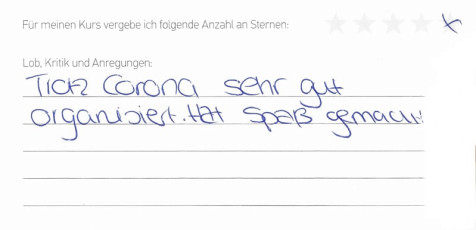 Für meinen Kurs vergebe ich folgende Anzahl an Sternen:
Lob, Kritik und Anregungen:
Trotz Corona sehr gut
organisiert. Hat Spaß gemacht!